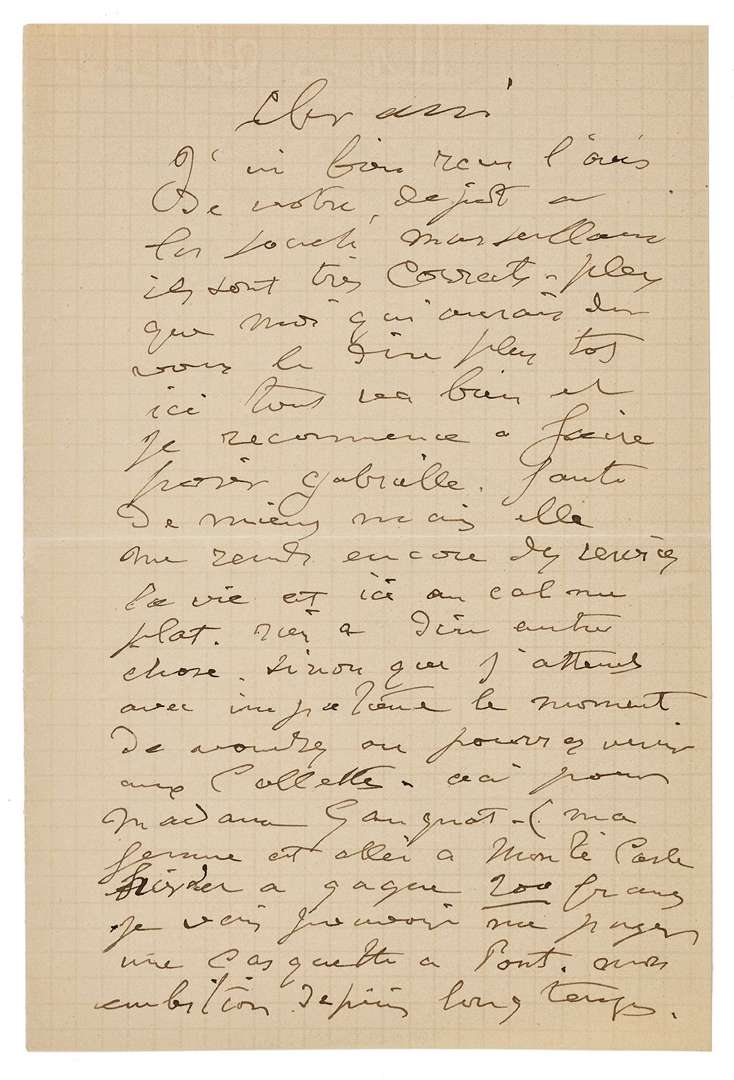 Cher ami
J'ai bien reçu l'avis
De votre depot a
la société marseillaise
ils sont très corrects. plus
que moi qui aurais du
vous le dire plus tot
ici tout va bien et
je recommence a faire
poser Gabrielle. faute
de mieux mais elle
me rends encore des services
la vie est ici au calme
plat. rien a dire autre
chose. sinon que j'attends
avec impatience le moment
de voudrez ou pourrez venir
aux Collettes. ceci pour
madame Gangnat. (ma
femme est allée a Monte Carle
hier a gagné 200 francs
je vais pouvoir me payer
une casquette a Pont. mon
ambition depuis long temps.